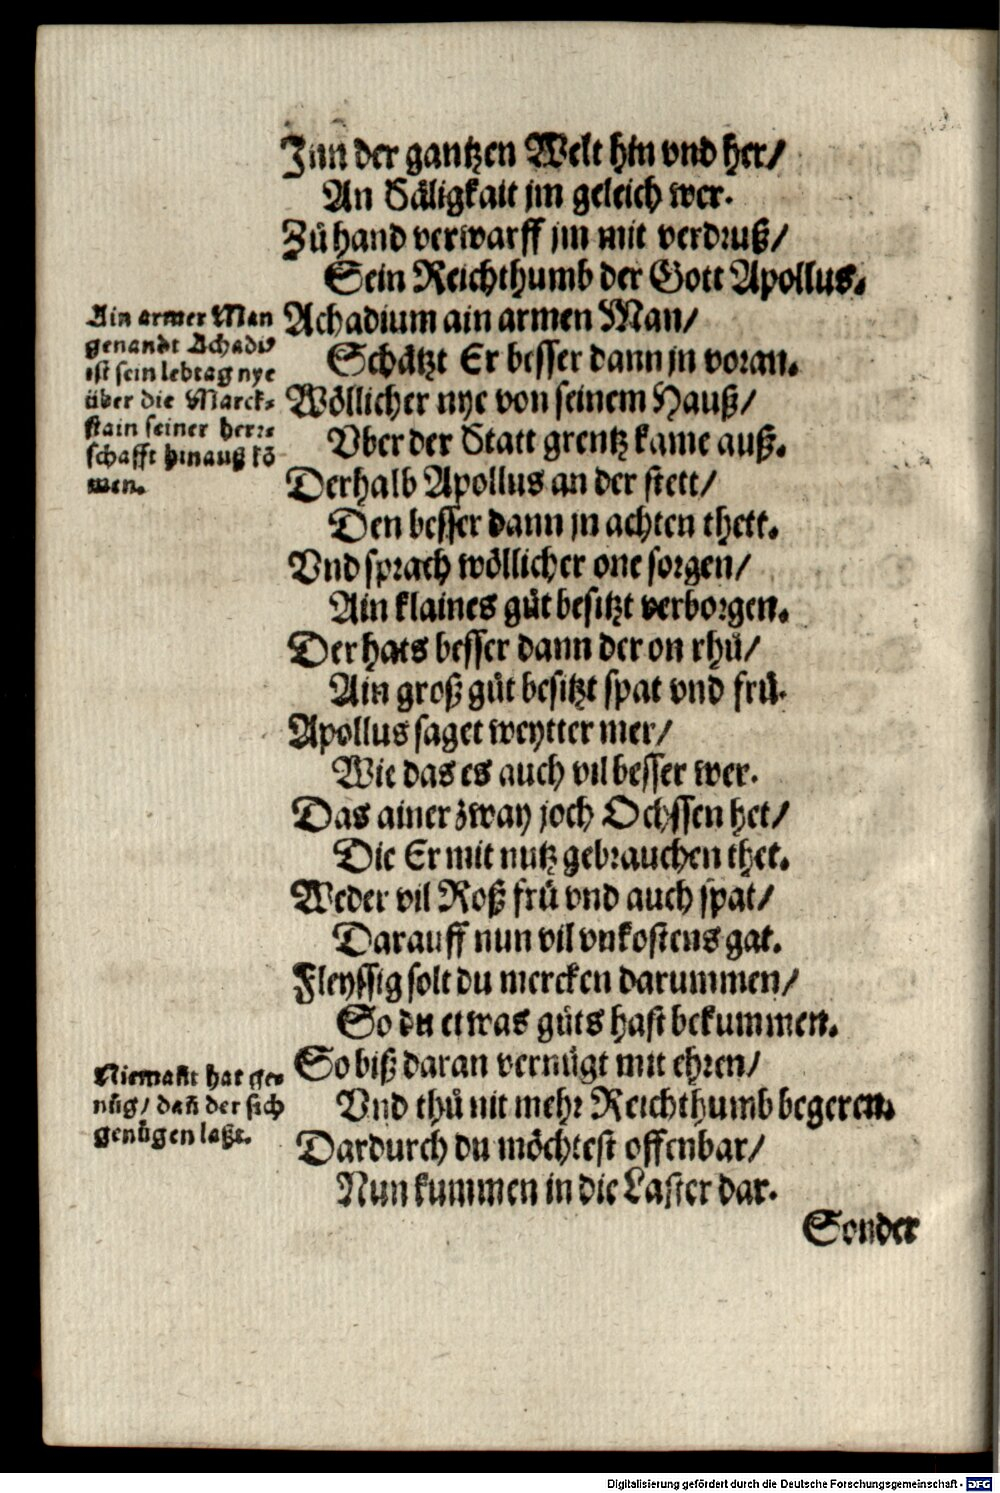 Inn der gantzen Welt hin vnd her/
An Säligkait jm geleich wer.
Zů hand verwarff jm mit verdruß/
Sein Reichthumb der Gott Apollus.
Ain armer Man
genandt Achadi⁹
ist sein lebtag nye
über die Marck-
stain seiner herr-
schafft hinauß kō
men.
Achadium ain armen Man/
Schätzt Er besser dann jn voran.
Wöllicher nye von seinem Hauß/
Vber der Statt grentz kame auß.
Derhalb Apollus an der stett/
Den besser dann jn achten thett.
Vnd sprach wöllicher one sorgen/
Ain klaines gůt besitzt verborgen.
Der hats besser dann der on rhů/
Ain groß gůt besitzt spat vnd frů.
Apollus saget weytter mer/
Wie das es auch vil besser wer.
Das ainer zway joch Ochssen het/
Die Er mit nutz gebrauchen thet.
Weder vil Roß frů vnd auch spat/
Darauff nun vil vnkostens gat.
Fleyssig solt du mercken darummen/
So du etwas gůts hast bekummen.
Niemañt hat ge-
nůg/ dañ der sich
genůgen laßt.
So biß daran vernůgt mit ehren/
Vnd thů nit mehr Reichthumb begeren.
Dardurch du möchtest offenbar/
Nun kummen in die Laster dar.
Sonder
Digitalisierung gefördert durch die Deutsche Forschungsgemeinschaft - DFG